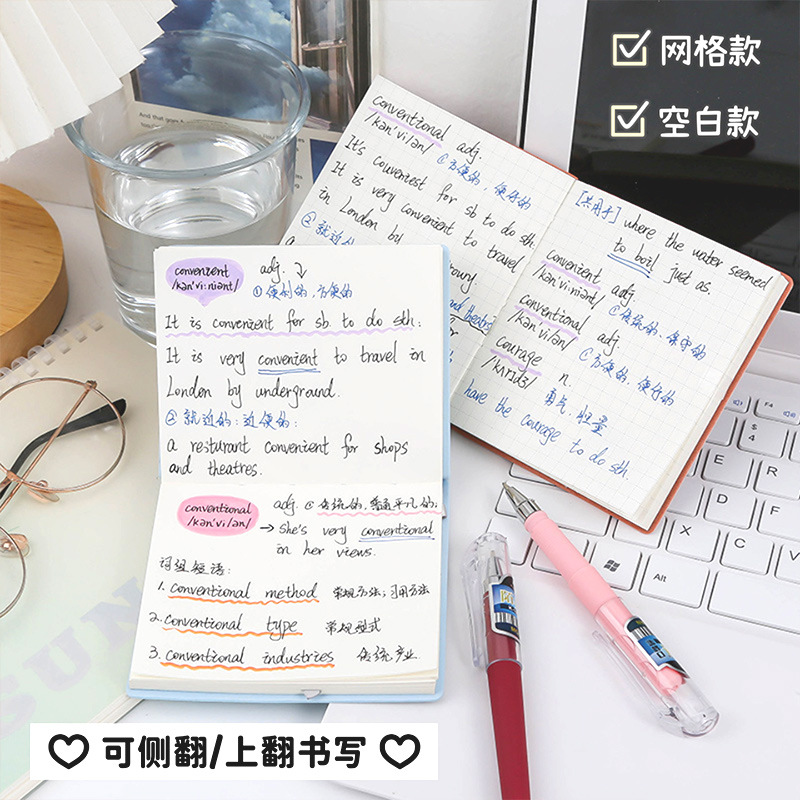 网格款
空白款
And
conventional adj.
/kən'vi/ən/ ②方便的、便行的
It's conveniest for sb to do sth.
It is very convenient to travel
in London by
②就近
[共用于] where the water seemed
to boil just as.
convenient adj
/kən'vi:niənt/ ①传统的、保守的
conventional adj.
/kən'vi/ən/ ②方便的、便行的
courage n.
/kʌrɪdʒ/ 勇气，胆量
have the courage to do sth.
convenient adj.
/kən'vi:niənt/
①便利的、方便的
It is convenient for sb. to do sth:
It is very convenient to travel in
London by underground.
②就近的：近便的：
a resturant convenient for shops
and theatres.
conventional adj. ②传统的，普通平凡的；
/kən'vi/ən/ → She's very conventional
in her views.
词组短语：
1. Conventional method 常规方法；习用方法
2. Conventional type 常规型式
3. Conventional industries 传统产业
SUN
F4
$
4
E
R
D
F
C
Alt
可侧翻/上翻书写